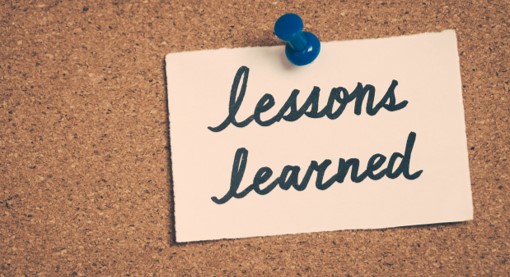 lessons
learned